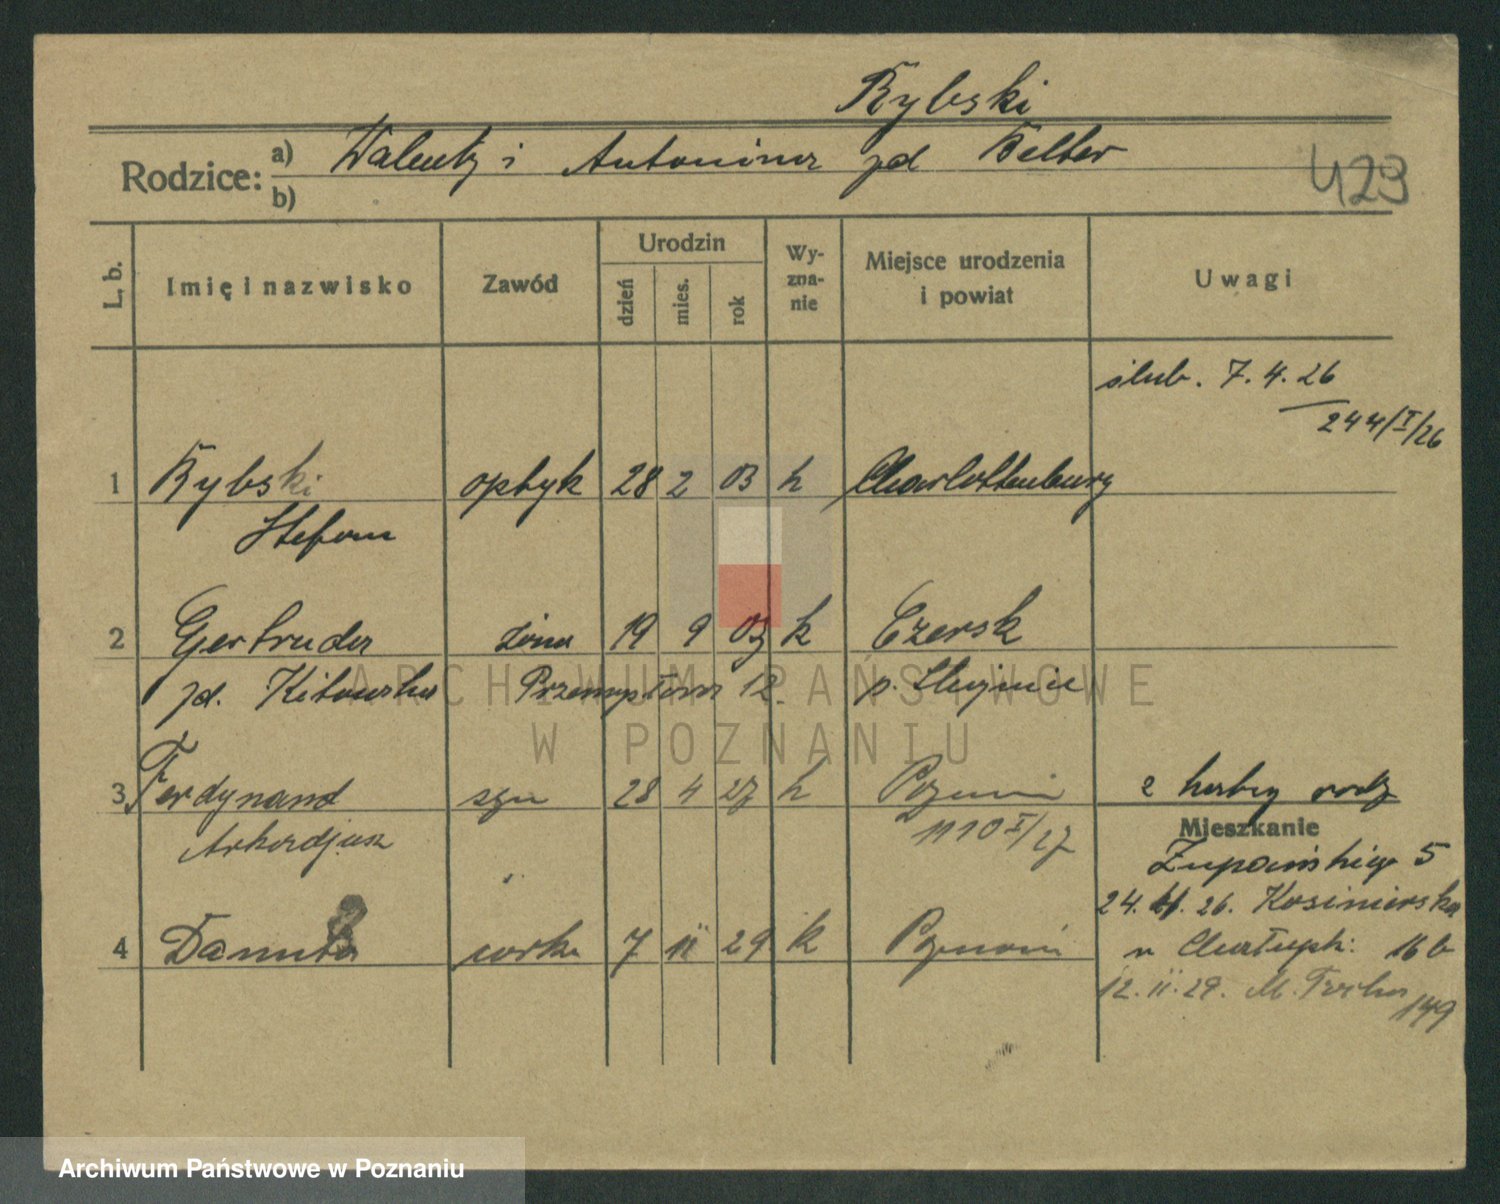 Rybski
Rodzice: a) Walenty i Antonina zd Kelter
b)
423
L. b.
Imię i nazwisko
Zawód
Urodzin
dzień mies. rok
Wy-
zna-
nie
Miejsce urodzenia
i powiat
Uwagi
ślub. 7. 4. 26
244/I/26
1 Rybski optyk 28 2 03 k Charlottenburg
Stefan
2 Gertruda żona 19 9 03 k Czersk
zd. Przemysłowa 12. p.
3 Ferdynand syn 28 4 27 k Poznań
Arkadjusz 1110 I/27
Mieszkanie
Żupańskiego 5
24. 26.
16 b
4 Danuta córka 7 11 29 k Poznań
12. II. 29. M. Focha
149
ARCHIWUM PAŃSTWOWE
W POZNANIU
Archiwum Państwowe w Poznaniu